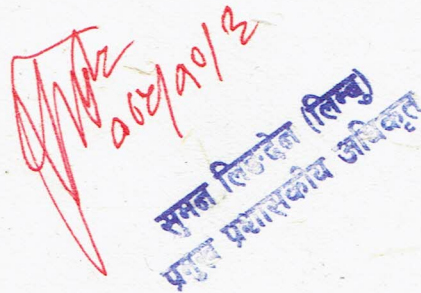 ०७९/१०/२
सुमन लिङदेन (लिम्बु)
प्रमुख प्रशासकीय अधिकृत